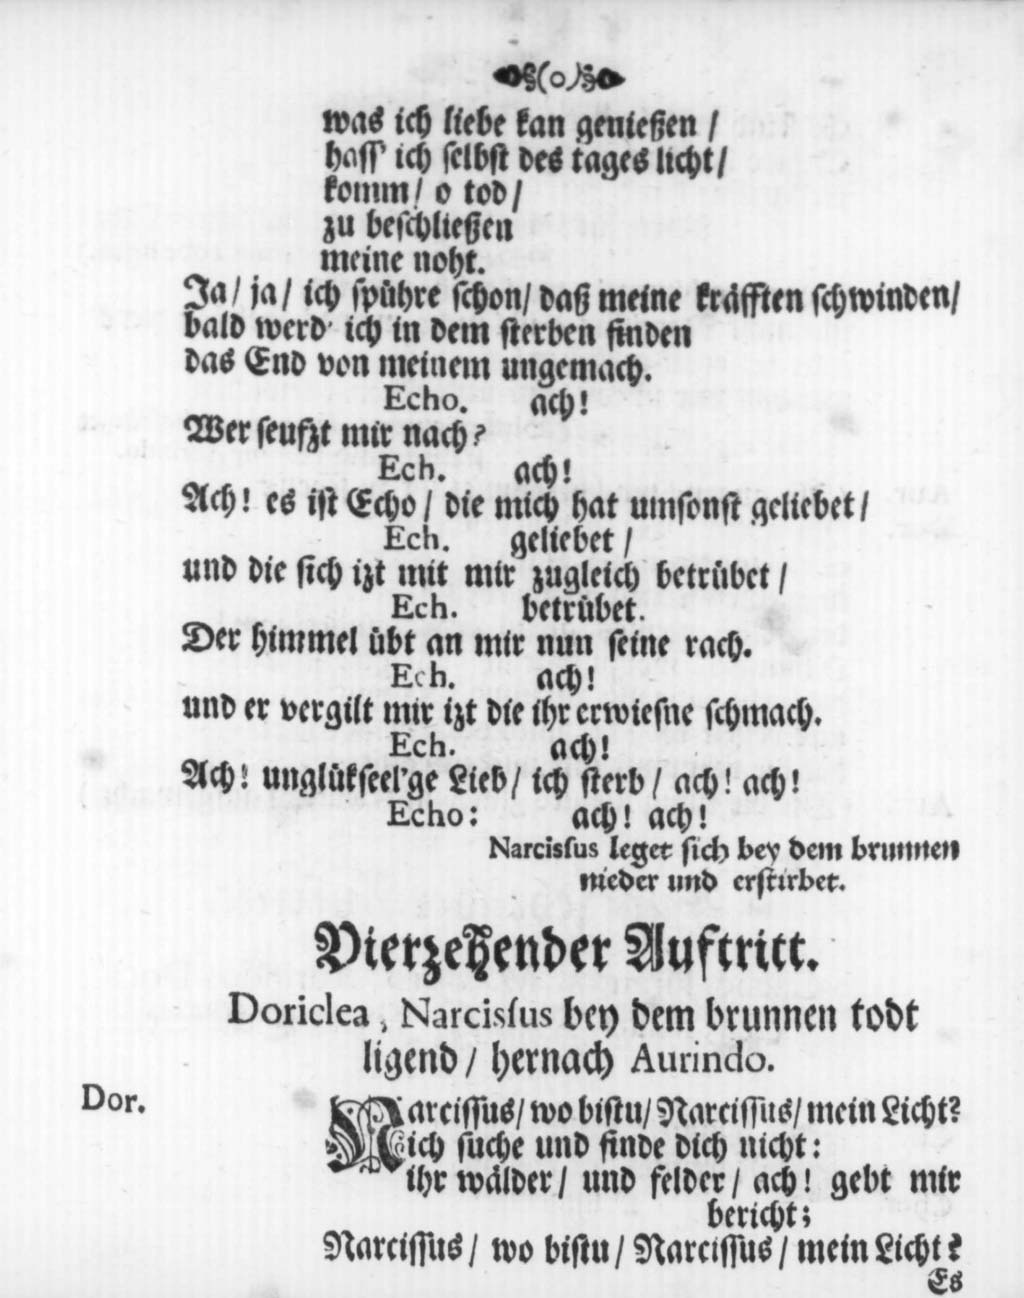 (o)
was ich liebe kan genießen /
hass' ich selbst des tages licht /
komm / o tod /
zu beschließen
meine noht.
Ja / ja / ich spühre schon / daß meine kräfften schwinden /
bald werd' ich in dem sterben finden
das End von meinem ungemach.
Echo. ach!
Wer seufzt mir nach?
Ech. ach!
Ach! es ist Echo / die mich hat umsonst geliebet /
Ech. geliebet /
und die sich izt mit mir zugleich betrübet /
Ech. betrübet.
Der himmel übt an mir nun seine rach.
Ech. ach!
und er vergilt mir izt die ihr erwiesne schmach.
Ech. ach!
Ach! unglükseel'ge Lieb / ich sterb / ach! ach!
Echo: ach! ach!
Narcissus leget sich bey dem brunnen
nieder und erstirbet.
Vierzehender Auftritt.
Doriclea, Narcissus bey dem brunnen todt
ligend / hernach Aurindo.
Dor. Narcissus / wo bistu / Narcissus / mein Licht?
ich suche und finde dich nicht:
ihr wälder / und felder / ach! gebt mir
bericht;
Narcissus / wo bistu / Narcissus / mein Licht?
Es